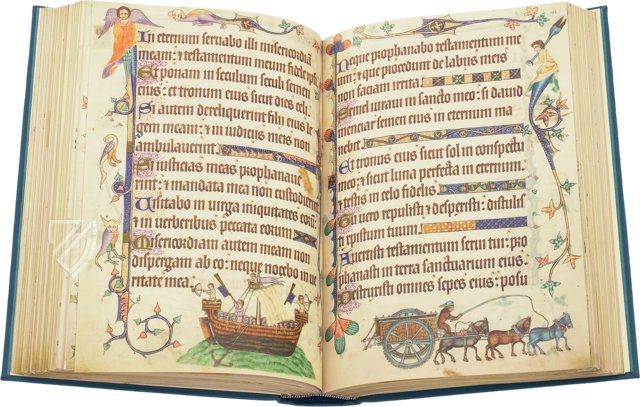 In eternum servabo illi misericordiā
meam: ⁊ testamentum meum fidele ipsi
Et ponam in seculum seculi semen
eius: et tronum eius sicut dies celi
Si autem dereliquerint filii eius le
gem meam: ⁊ in iudiciis meis non
ambulaverint
Si iusticias meas prophanaver
rint: ⁊ mandata mea non custodierint
Visitabo in virga iniquitates eorum
et in verberibus peccata eorum
Misericordiam autem meam non
dispergam ab eo: neque nocebo in ve
ritate mea
Neque prophanabo testamentum me
um: ⁊ que procedunt de labiis meis
non faciam irrita
Semel iuravi in sancto meo: si david
menciar semen eius in eternum ma
nebit
Et tronus eius sicut sol in conspectu
meo: et sicut luna perfecta in eternum
⁊ testis in celo fidelis
Tu vero repulisti ⁊ despexisti: distulisti
xpistum tuum
Avertisti testamentum servi tui: pro
phanasti in terra sanctuarium eius
Destruxisti omnes sepes eius: posu